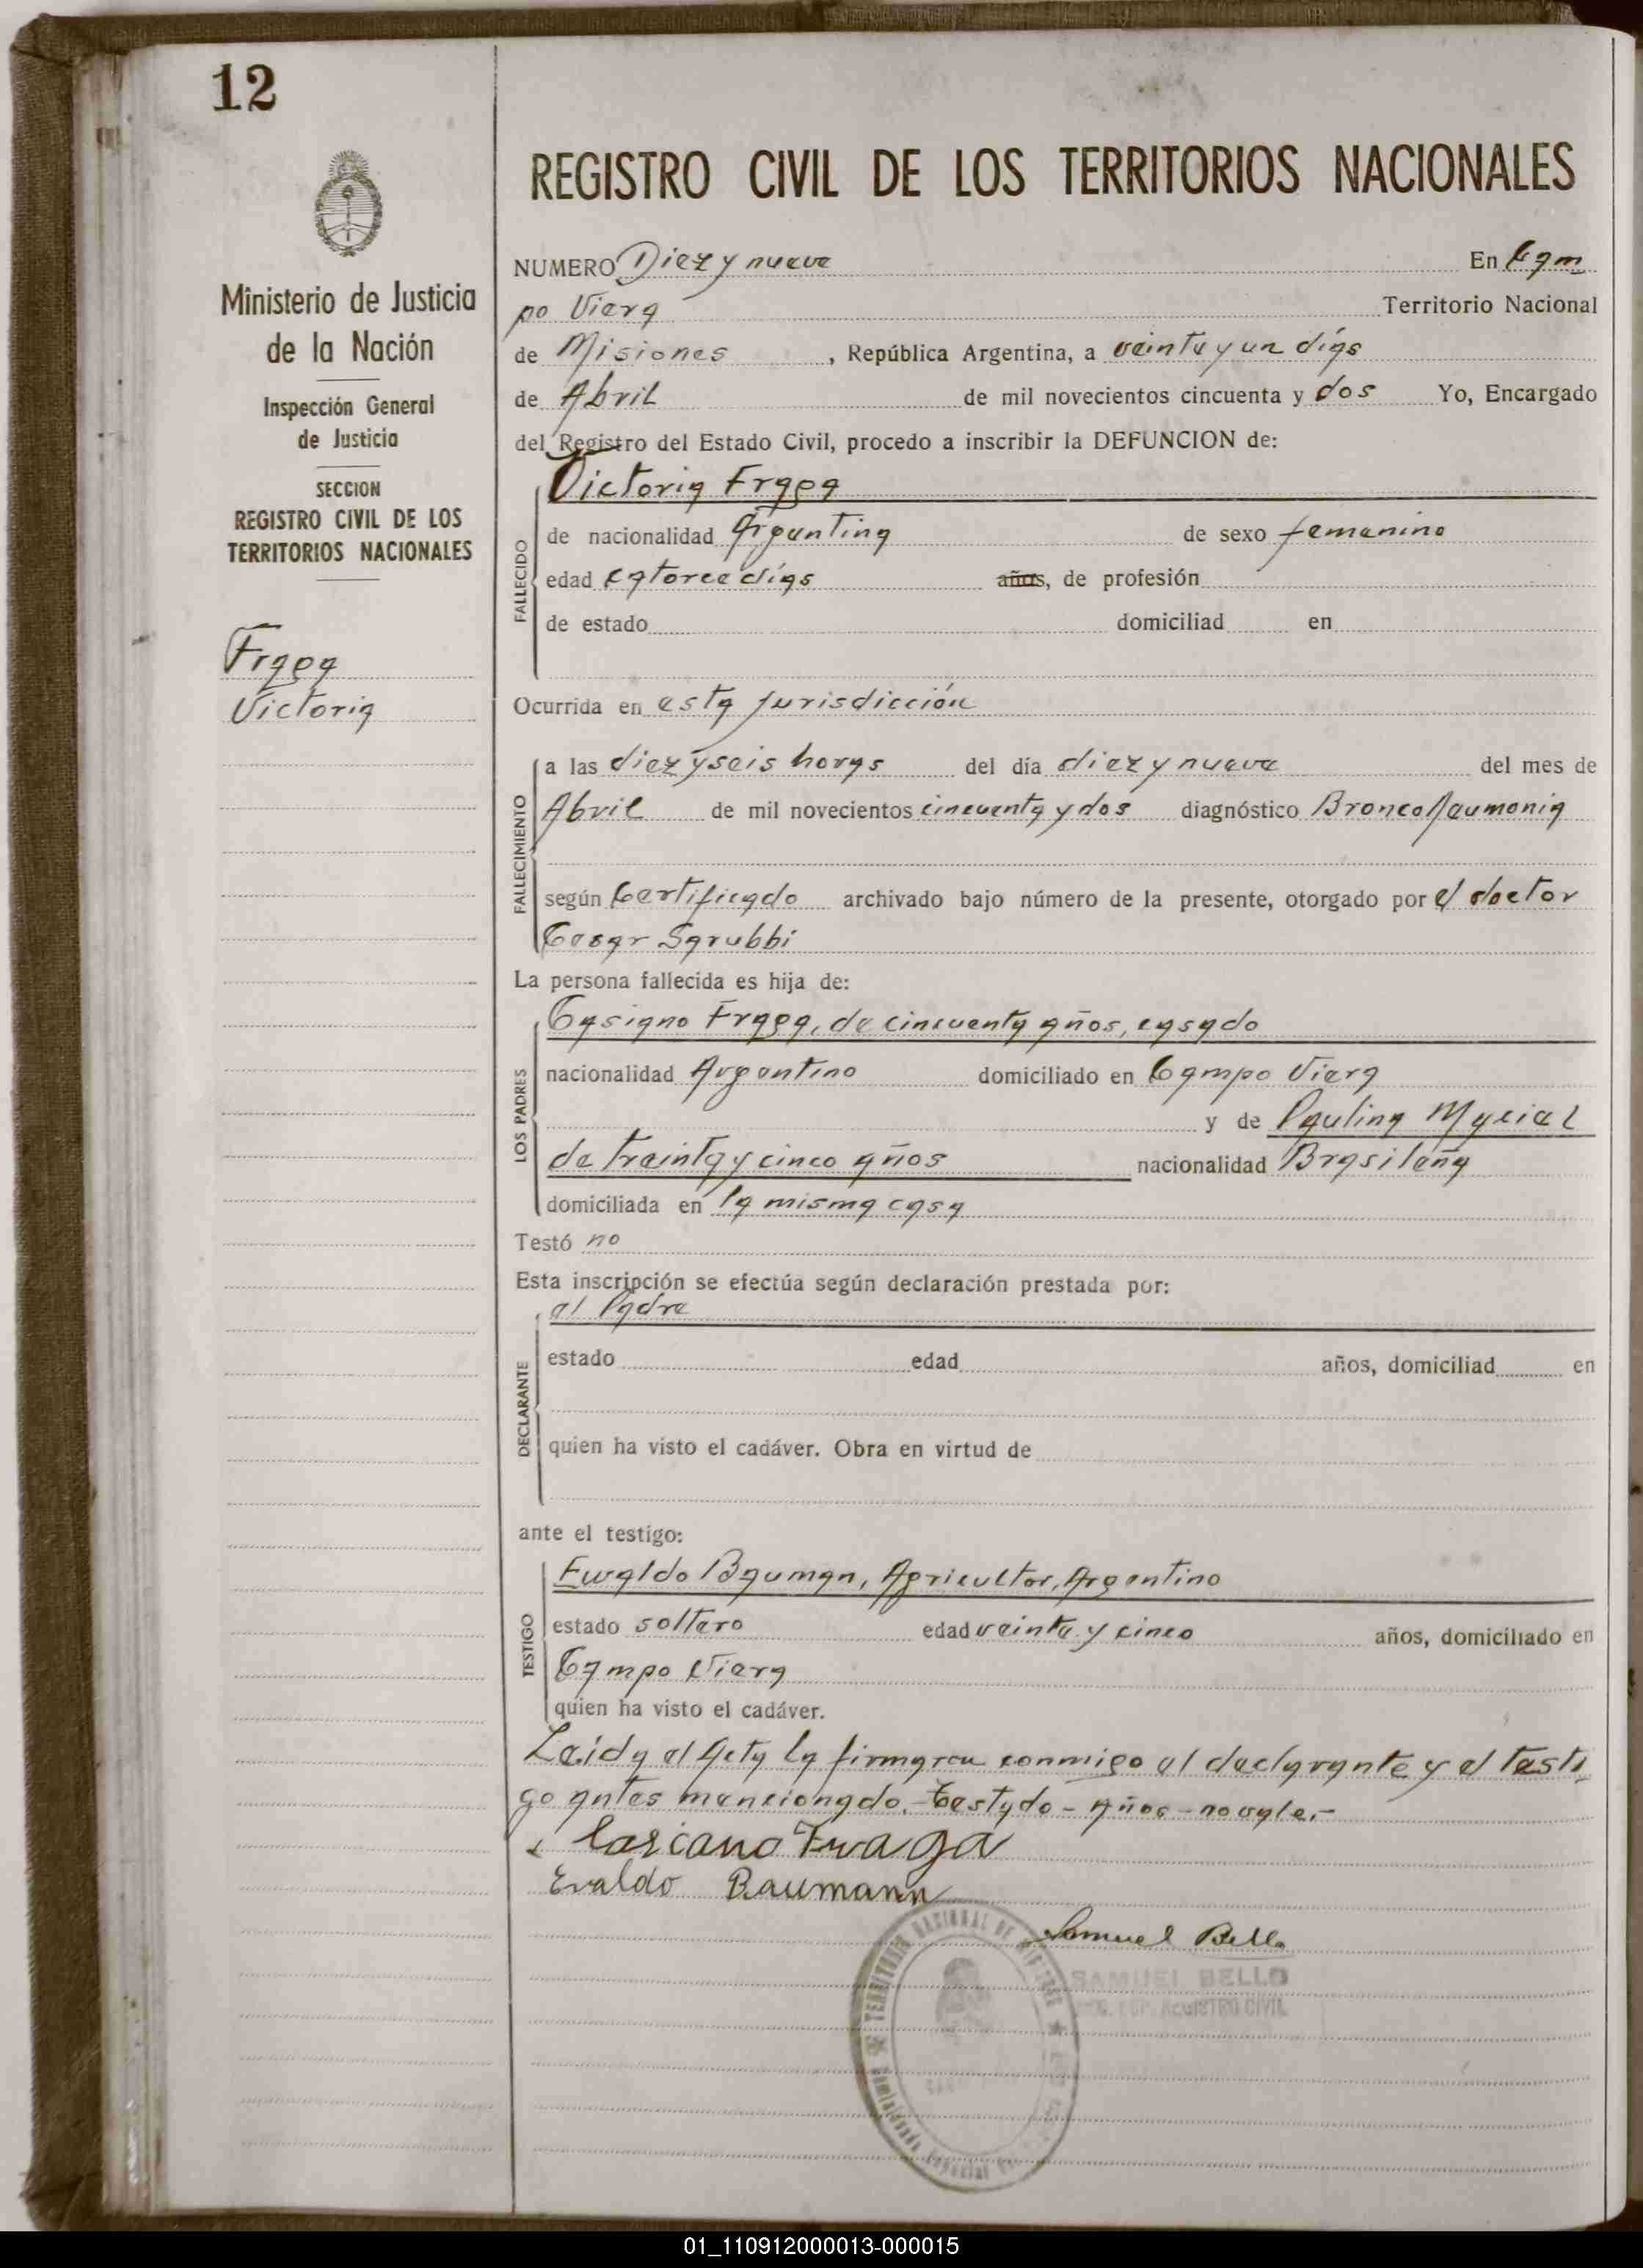 12
Ministerio de Justicia
de la Nación
Inspección General
de Justicia
SECCION
REGISTRO CIVIL DE LOS
TERRITORIOS NACIONALES
Fraga
Victoria
REGISTRO CIVIL DE LOS TERRITORIOS NACIONALES
NUMERO Diez y nueve En Cam
po Viera Territorio Nacional
de Misiones, República Argentina, a veinte y un días
de Abril de mil novecientos cincuenta y dos Yo, Encargado
del Registro del Estado Civil, procedo a inscribir la DEFUNCION de:
Victoria Fraga
FALLECIDO
de nacionalidad Argentina de sexo femenino
edad catorce días años, de profesión
de estado domiciliad en
Ocurrida en esta jurisdicción
FALLECIMIENTO
a las diez y seis horas del día diez y nueve del mes de
Abril de mil novecientos cincuenta y dos diagnóstico Bronco Neumonia
según Certificado archivado bajo número de la presente, otorgado por el doctor
Cesar Sarubbi
La persona fallecida es hija de:
LOS PADRES
Casiano Fraga, de cincuenta años, casado
nacionalidad Argentino domiciliado en Campo Viera
y de Paulina Maciel
de treinta y cinco años nacionalidad Brasileña
domiciliada en la misma casa
Testó no
Esta inscripción se efectúa según declaración prestada por:
el Padre
DECLARANTE
estado edad años, domiciliad en
quien ha visto el cadáver. Obra en virtud de
ante el testigo:
TESTIGO
Ewaldo Bauman, Agricultor, Argentino
estado soltero edad veinte y cinco años, domiciliado en
Campo Viera
quien ha visto el cadáver.
Leída el Acta la firmaron conmigo el declarante y el testi
go antes mencionado. Testado - años - no vale.-
Casiano Fraga
Evaldo Baumann
Samuel Bello
SAMUEL BELLO
REGISTRO CIVIL
TERRITORIO NACIONAL DE MISIONES
01_110912000013-000015